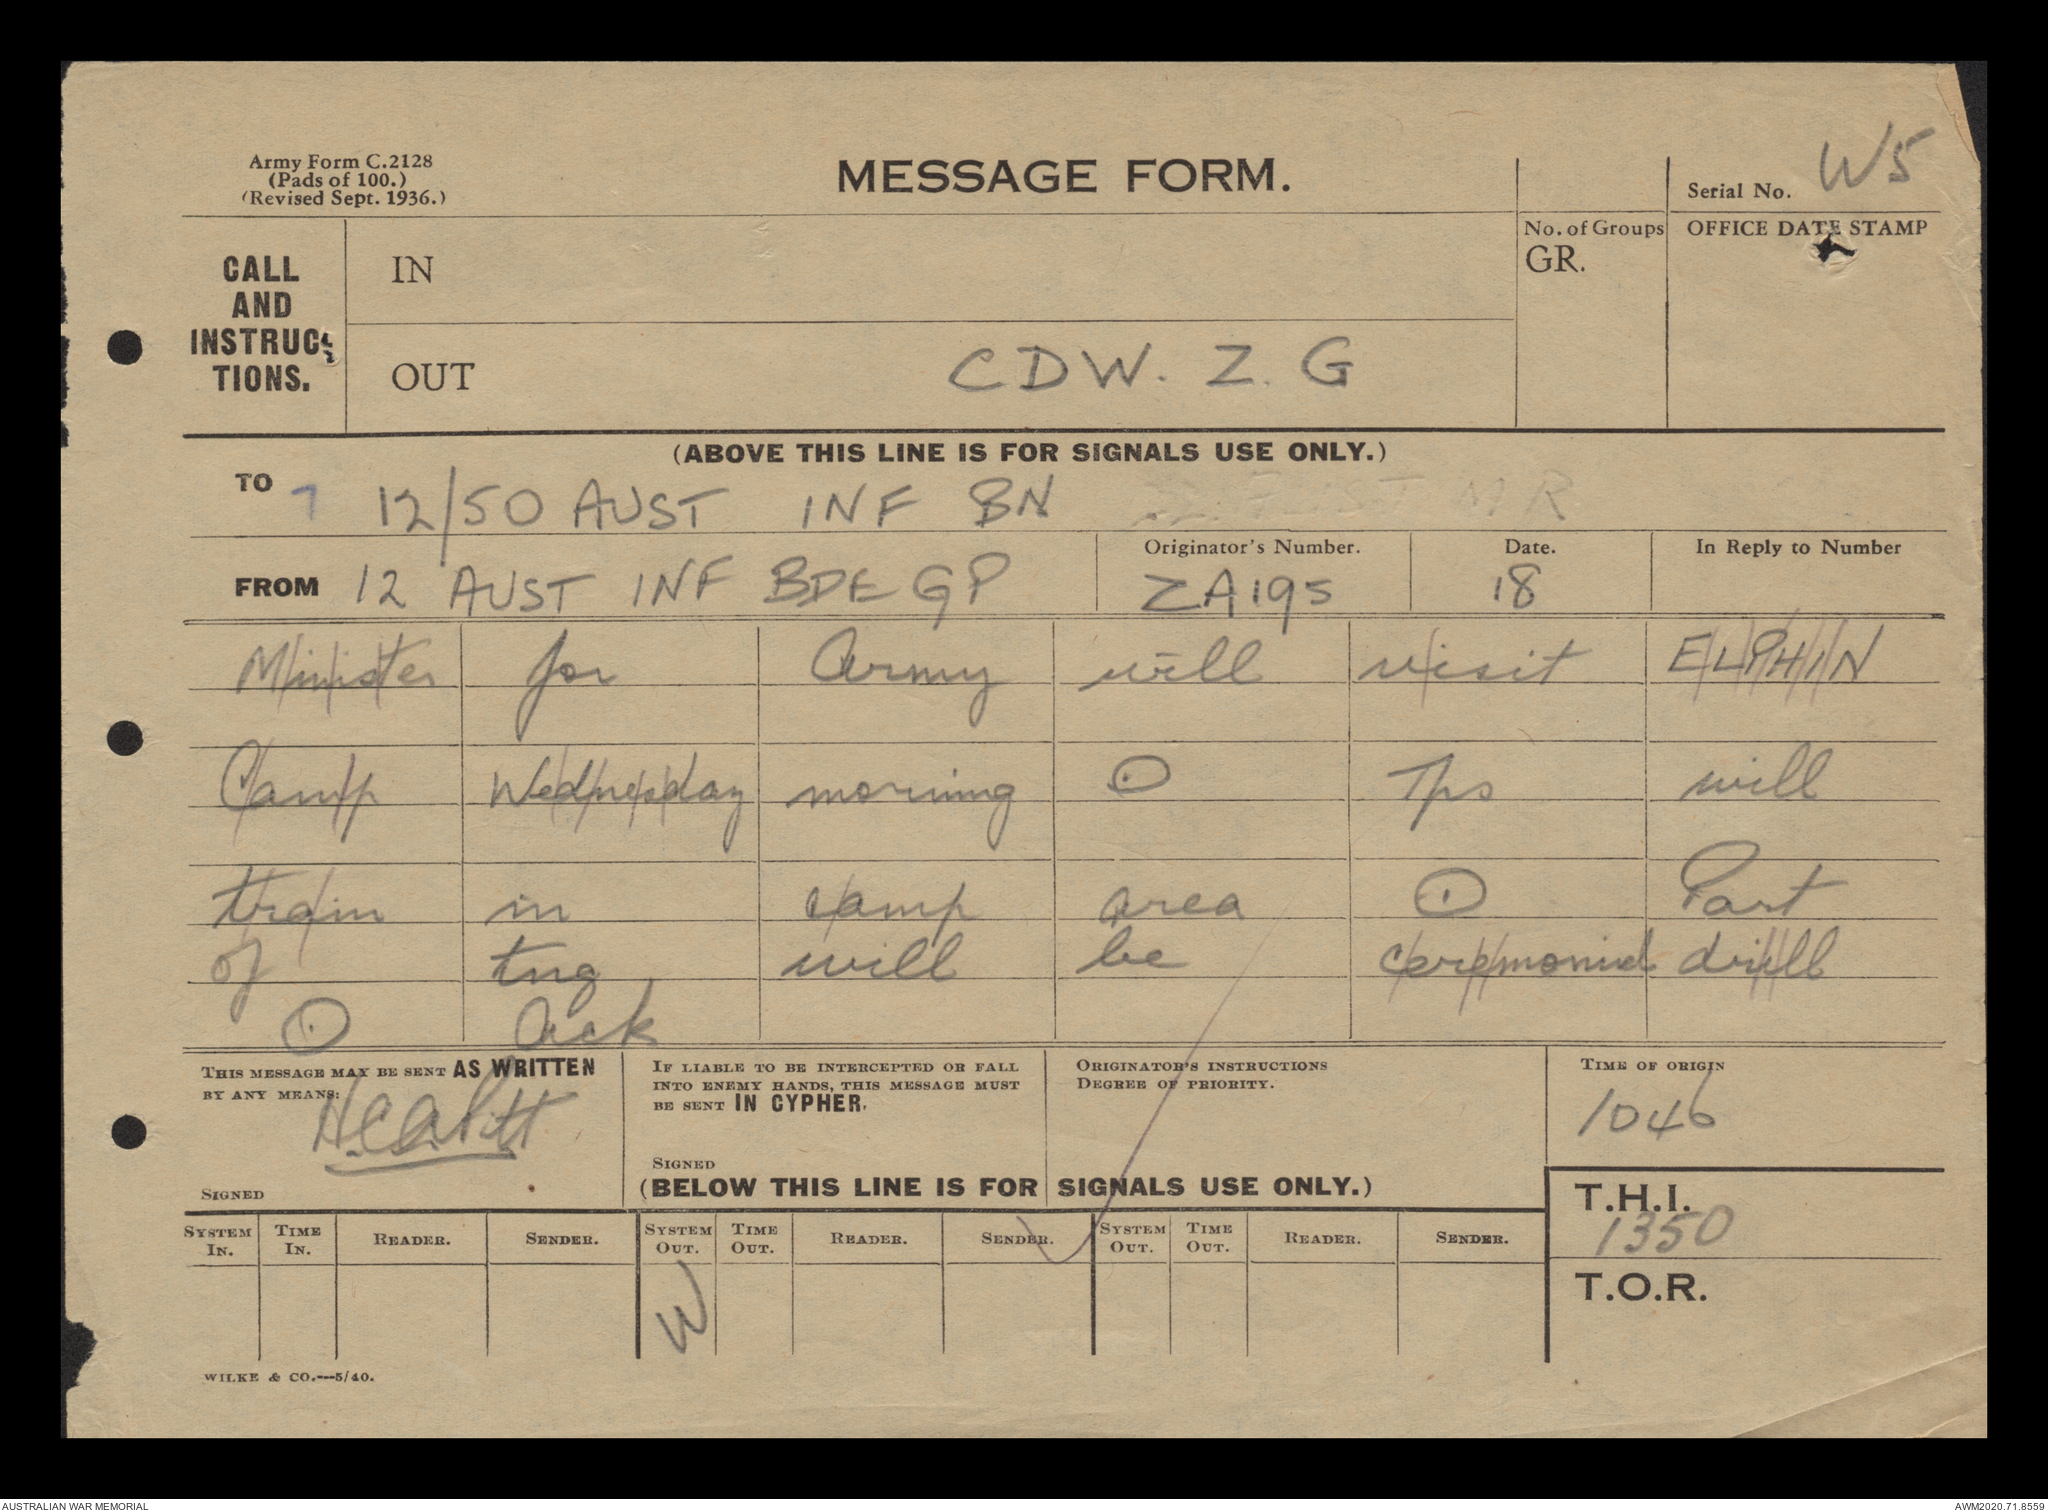 Army Form C.2128
(Pads of 100.)
(Revised Sept. 1936.)
MESSAGE FORM.
Serial No. W5
CALL
AND
INSTRUC-
TIONS.
IN
No. of Groups
GR.
OFFICE DATE STAMP
OUT CDW. Z. G
(ABOVE THIS LINE IS FOR SIGNALS USE ONLY.)
TO 12/50 AUST INF BN
FROM 12 AUST INF BDE GP
Originator's Number.
ZA195
Date.
18
In Reply to Number
Minister for Army will visit ELPHIN
Camp Wednesday morning ⊙ Tps will
train in camp area ⊙ Part
of tng will be ceremonial drill
⊙ Ack
THIS MESSAGE MAY BE SENT AS WRITTEN
BY ANY MEANS:
SIGNED
IF LIABLE TO BE INTERCEPTED OR FALL
INTO ENEMY HANDS, THIS MESSAGE MUST
BE SENT IN CYPHER.
SIGNED
ORIGINATOR'S INSTRUCTIONS
DEGREE OF PRIORITY.
TIME OF ORIGIN
1046
(BELOW THIS LINE IS FOR SIGNALS USE ONLY.)
T.H.I.
1350
T.O.R.
SYSTEM IN. TIME IN. READER. SENDER. SYSTEM OUT. TIME OUT. READER. SENDER. SYSTEM OUT. TIME OUT. READER. SENDER.
W
WILKE & CO.---5/40.
AUSTRALIAN WAR MEMORIAL
AWM2020.71.8559